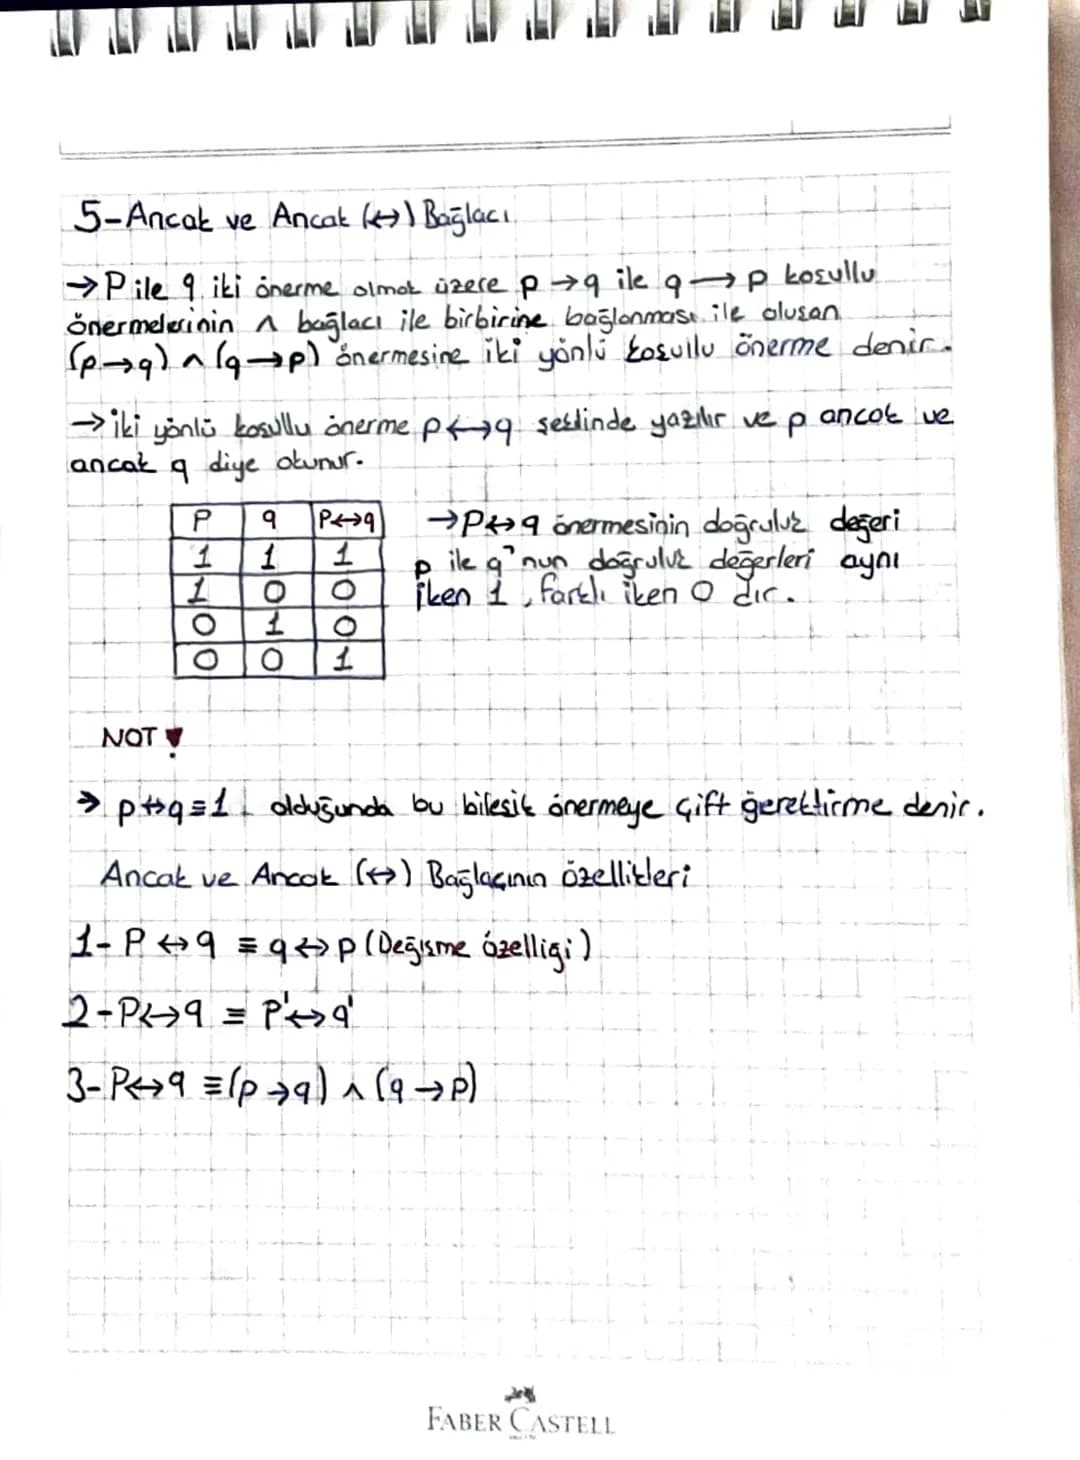 5-Ancak ve Ancak (↔) Bağlacı
→ P ile q iki önerme olmak üzere p → q ile q → p koşullu
önermelerinin ∧ bağlacı ile birbirine bağlanması ile oluşan
(p→q) ∧ (q→p) önermesine iki yönlü koşullu önerme denir.
→ iki yönlü koşullu önerme p↔q şeklinde yazılır ve p ancak ve
ancak q diye okunur.
P q P↔q
1 1 1
1 0 0
0 1 0
0 0 1
→ P↔q önermesinin doğruluk değeri
p ile q'nun doğruluk değerleri aynı
iken 1, farklı iken 0 dır.
NOT !
→ p↔q≡1 olduğunda bu bileşik önermeye çift gerektirme denir.
Ancak ve Ancak (↔) Bağlacının özellikleri
1- P ↔ q ≡ q ↔ p (Değişme özelliği)
2- P↔q ≡ P'↔q'
3- P↔q ≡ (p→q) ∧ (q→p)
FABER CASTELL